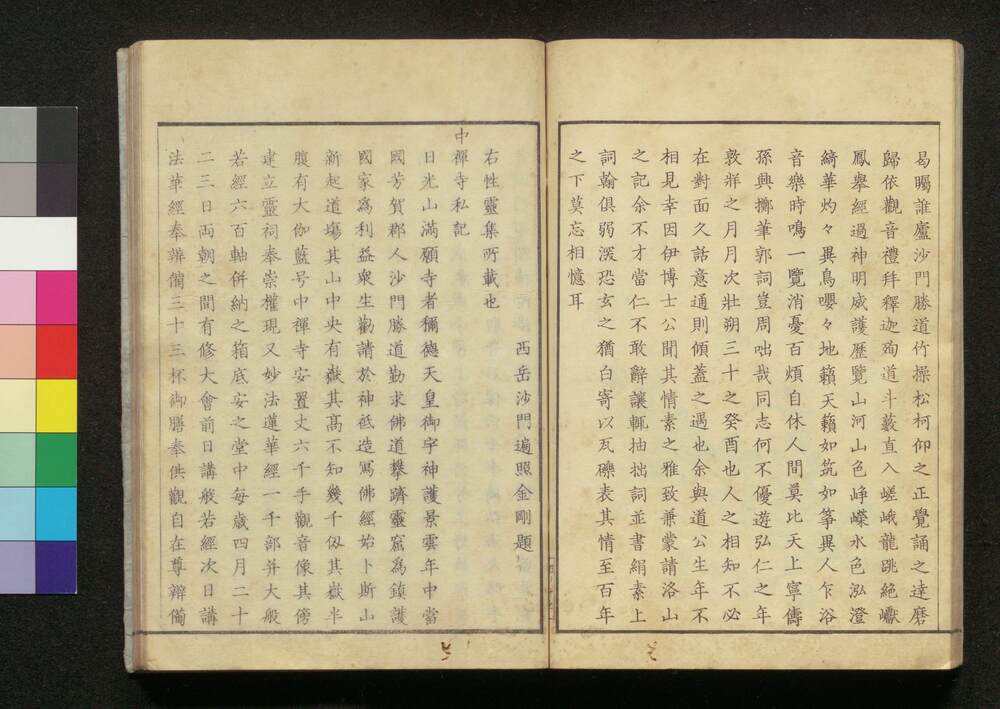 曷矚誰廬沙門勝道竹操松柯仰之正覺誦之達磨
歸依觀音禮拜釋迦殉道斗藪直入嵯峨龍跳絶巘
鳳擧經過神明威護歷覽山河山色崢嶸水色泓澄
綺華灼々異鳥嚶々地籟天籟如筑如箏異人乍浴
音樂時鳴一覽消憂百煩自休人間莫比天上寧儔
孫興擲華郭詞豈周咄哉同志何不優遊弘仁之年
敦牂之月月次壯朔三十之癸酉也人之相知不必
在對面久話意通則傾蓋之遇也余與道公生年不
相見幸因伊博士公聞其情素之雅致兼蒙請洛山
之記余不才當仁不敢辭讓輒抽拙詞並書絹素上
詞翰俱弱深恐玄之猶白寄以瓦礫表其情至百年
之下莫忘相憶耳
西岳沙門遍照金剛題
右性靈集所載也
中禪寺私記
日光山滿願寺者稱德天皇御宇神護景雲年中當
國芳賀郡人沙門勝道勤求佛道攀躋靈窟爲鎮護
國家爲利益衆生勸請於神祇造寫佛經始卜斯山
新起道場其山中央有嶽其高不知幾千仭其嶽半
腹有大伽藍号中禪寺安置丈六千手觀音像其傍
建立靈祠奉崇權現又妙法蓮華經一千部并大般
若經六百軸併納之箱底安之堂中每歳四月二十
二三日両朝之間有修大會前日講般若經次日講
法華經奉辨備三十三杯御膳奉供觀自在尊辨備